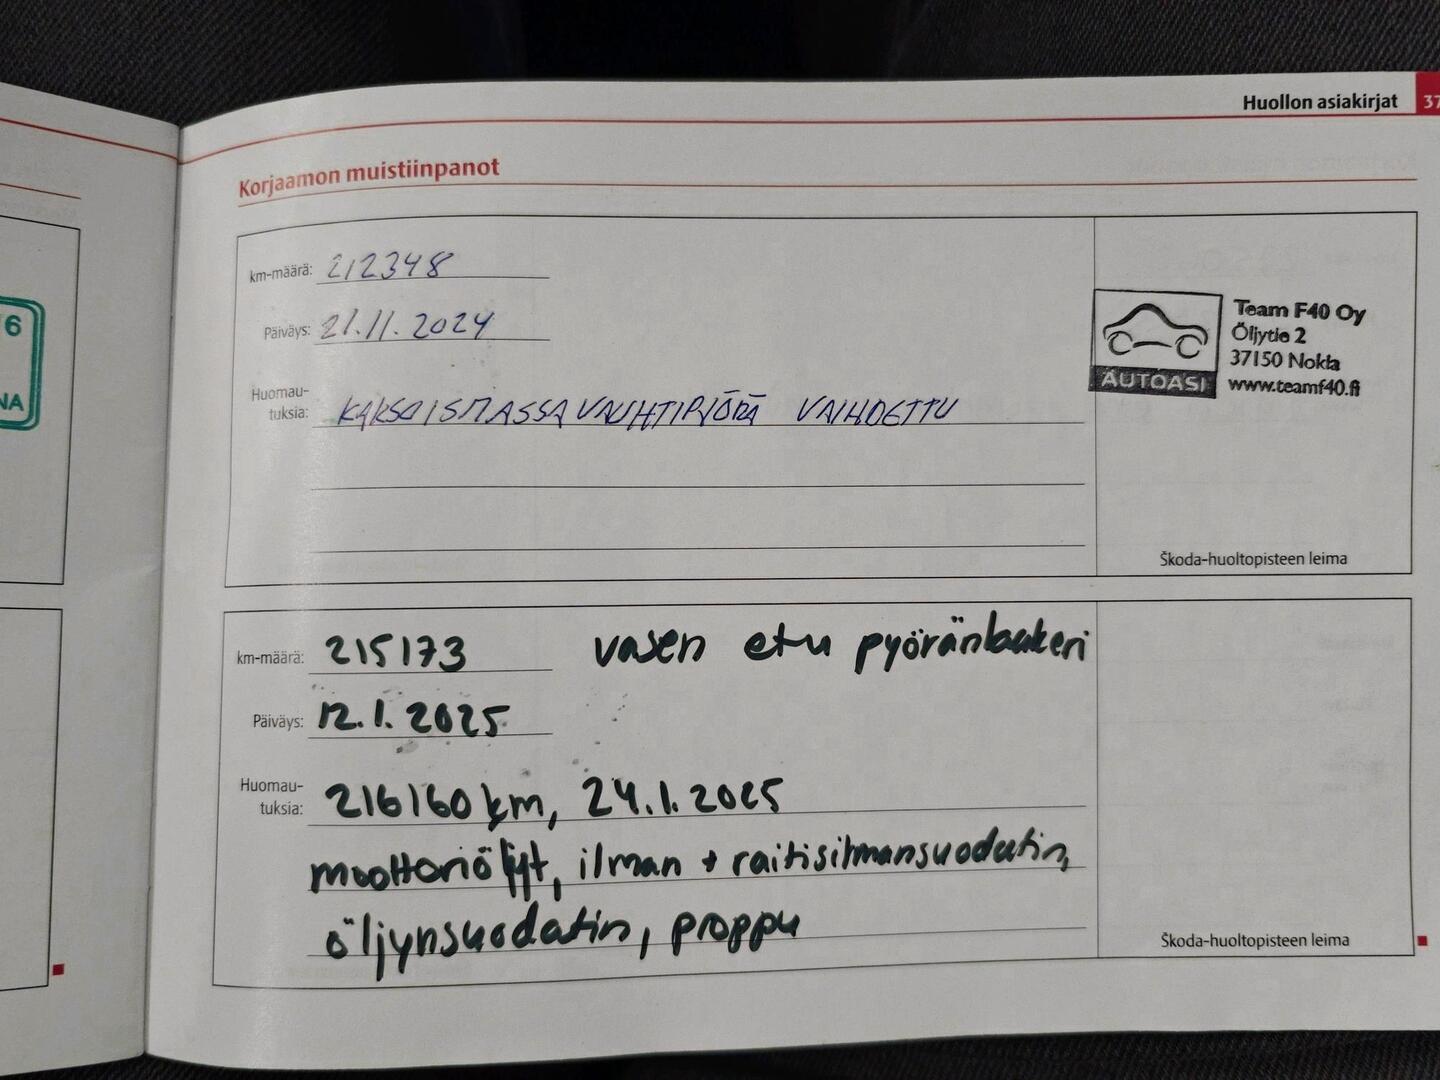 Huollon asiakirjat 37
Korjaamon muistiinpanot
km-määrä: 212348
Päiväys: 21.11.2024
Huomau-
tuksia: KAKSOISMASSAVAUHTIPYÖRÄ VAIHDETTU
Team F40 Oy
Öljytie 2
37150 Nokia
www.teamf40.fi
AUTOASI
Škoda-huoltopisteen leima
km-määrä: 215173 vasen etu pyöränlaakeri
Päiväys: 12.1.2025
Huomau-
tuksia: 216160 km, 24.1.2025
moottoriöljyt, ilman + raitisilmansuodatin,
öljynsuodatin, proppu
Škoda-huoltopisteen leima
6
NA